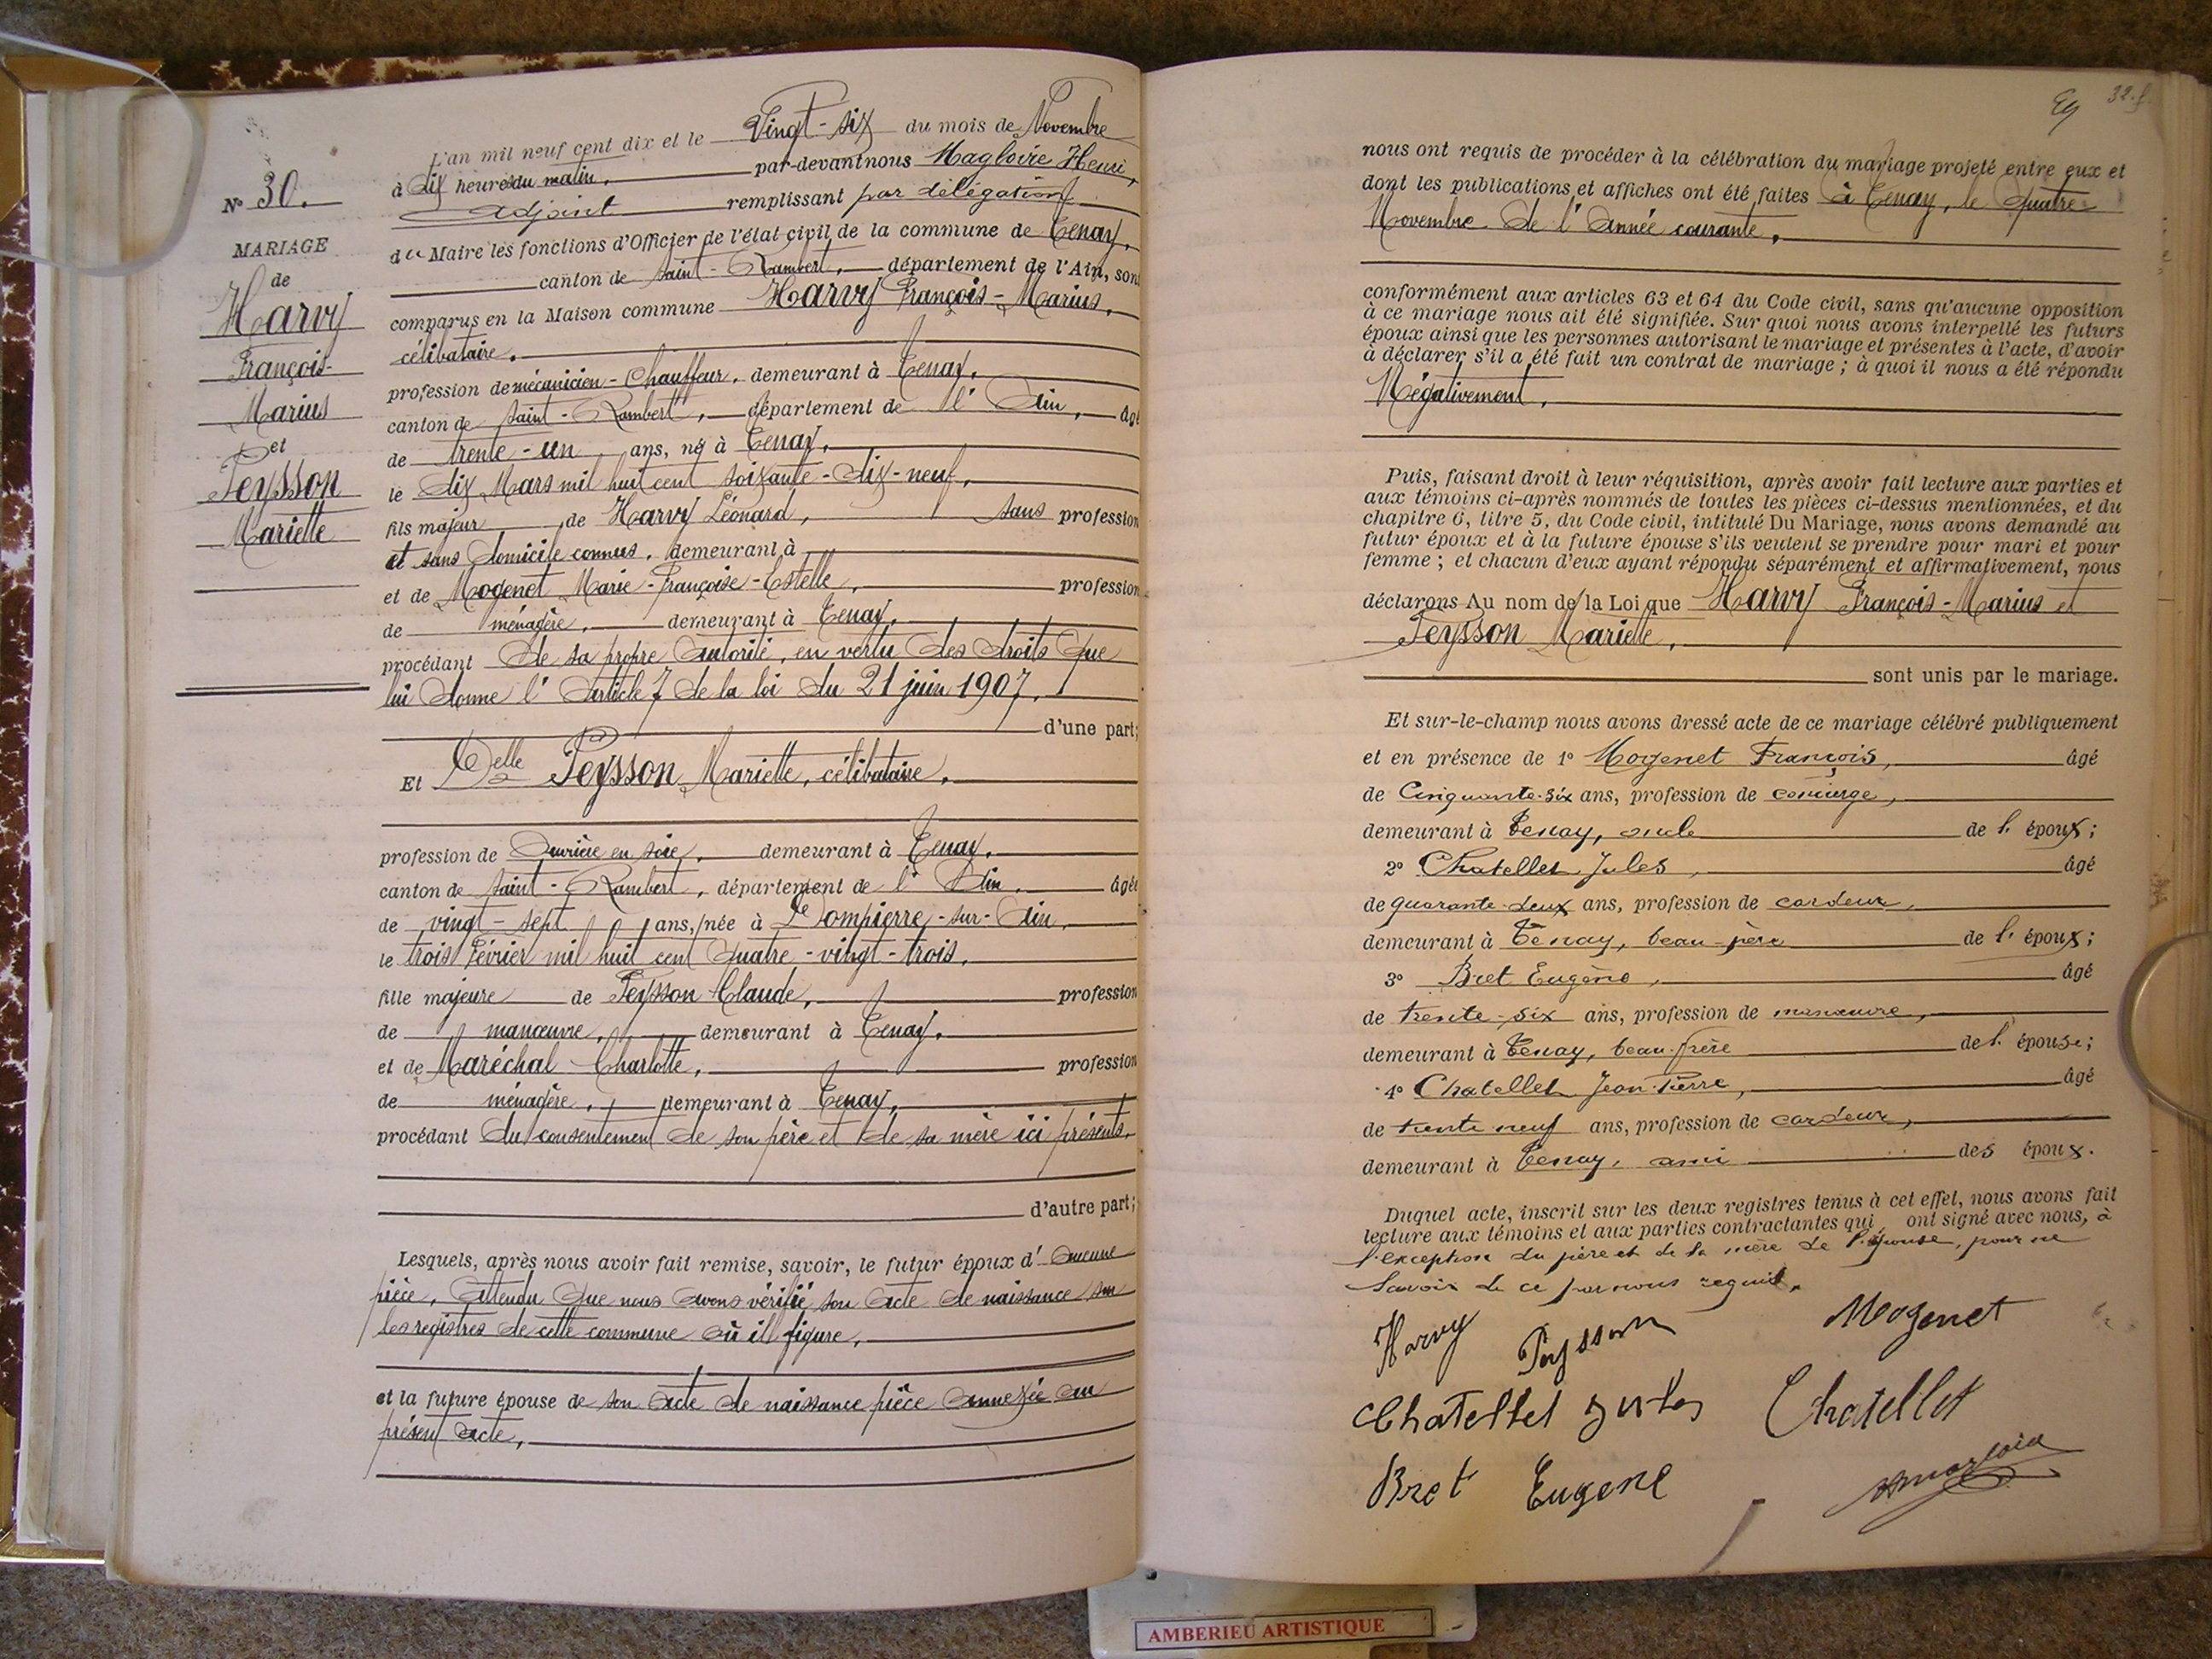 N° 30.
MARIAGE
de
Harvy
François-
Marius
et
Peysson
Mariette
L'an mil neuf cent dix et le Vingt-six du mois de Novembre
à dix heures du matin, par-devant nous Magloire Henri,
adjoint remplissant par délégation
du Maire les fonctions d'Officier de l'état civil de la commune de Tenay,
canton de Saint-Rambert, département de l'Ain, sont
comparus en la Maison commune Harvy François-Marius,
célibataire,
profession de mécanicien-Chauffeur, demeurant à Tenay,
canton de Saint-Rambert, département de l'Ain, âgé
de trente-un ans, né à Tenay,
le dix Mars mil huit cent soixante-dix-neuf,
fils majeur de Harvy Léonard, sans profession
et sans domicile connus, demeurant à
et de Mogenet Marie-Françoise-Estelle, profession
de ménagère, demeurant à Tenay,
procédant de sa propre autorité, en vertu des droits que
lui donne l'article 7 de la loi du 21 juin 1907,
d'une part;
Et Delle Peysson Mariette, célibataire,
profession de Ouvrière en soie, demeurant à Tenay,
canton de Saint-Rambert, département de l'Ain, âgée
de vingt-sept ans, née à De Dompierre-sur-Ain,
le trois Février mil huit cent quatre-vingt-trois,
fille majeure de Peysson Claude, profession
de manœuvre, demeurant à Tenay,
et de Maréchal Charlotte, profession
de ménagère, demeurant à Tenay,
procédant du consentement de son père et de sa mère ici présents,
d'autre part;
Lesquels, après nous avoir fait remise, savoir, le futur époux d'aucune
pièce, attendu que nous avons vérifié son acte de naissance sur
les registres de cette commune où il figure,
et la future épouse de son acte de naissance pièce annexée au
présent acte,
32.
nous ont requis de procéder à la célébration du mariage projeté entre eux et
dont les publications et affiches ont été faites à Tenay, le quatre
Novembre de l'année courante,
conformément aux articles 63 et 64 du Code civil, sans qu'aucune opposition
à ce mariage nous ait été signifiée. Sur quoi nous avons interpellé les futurs
époux ainsi que les personnes autorisant le mariage et présentes à l'acte, d'avoir
à déclarer s'il a été fait un contrat de mariage; à quoi il nous a été répondu
Négativement,
Puis, faisant droit à leur réquisition, après avoir fait lecture aux parties et
aux témoins ci-après nommés de toutes les pièces ci-dessus mentionnées, et du
chapitre 6, titre 5, du Code civil, intitulé Du Mariage, nous avons demandé au
futur époux et à la future épouse s'ils veulent se prendre pour mari et pour
femme; et chacun d'eux ayant répondu séparément et affirmativement, nous
déclarons Au nom de la Loi que Harvy François-Marius et
Peysson Mariette,
sont unis par le mariage.
Et sur-le-champ nous avons dressé acte de ce mariage célébré publiquement
et en présence de 1° Mogenet François, âgé
de Cinquante-six ans, profession de concierge,
demeurant à Tenay, oncle de l'époux;
2° Chatellet Jules, âgé
de quarante-deux ans, profession de cardeur,
demeurant à Tenay, beau-père de l'époux;
3° Bret Eugène, âgé
de trente-six ans, profession de manœuvre,
demeurant à Tenay, beau-frère de l'épouse;
4° Chatellet Jean-Pierre, âgé
de trente neuf ans, profession de cardeur,
demeurant à Tenay, ami des époux.
Duquel acte, inscrit sur les deux registres tenus à cet effet, nous avons fait
lecture aux témoins et aux parties contractantes qui ont signé avec nous, à
l'exception du père et de la mère de l'épouse, pour ne
savoir de ce par nous requis,
Harvy Peysson Mogenet
Chatellet Jules Chatellet
Bret Eugene
AMBERIEU ARTISTIQUE